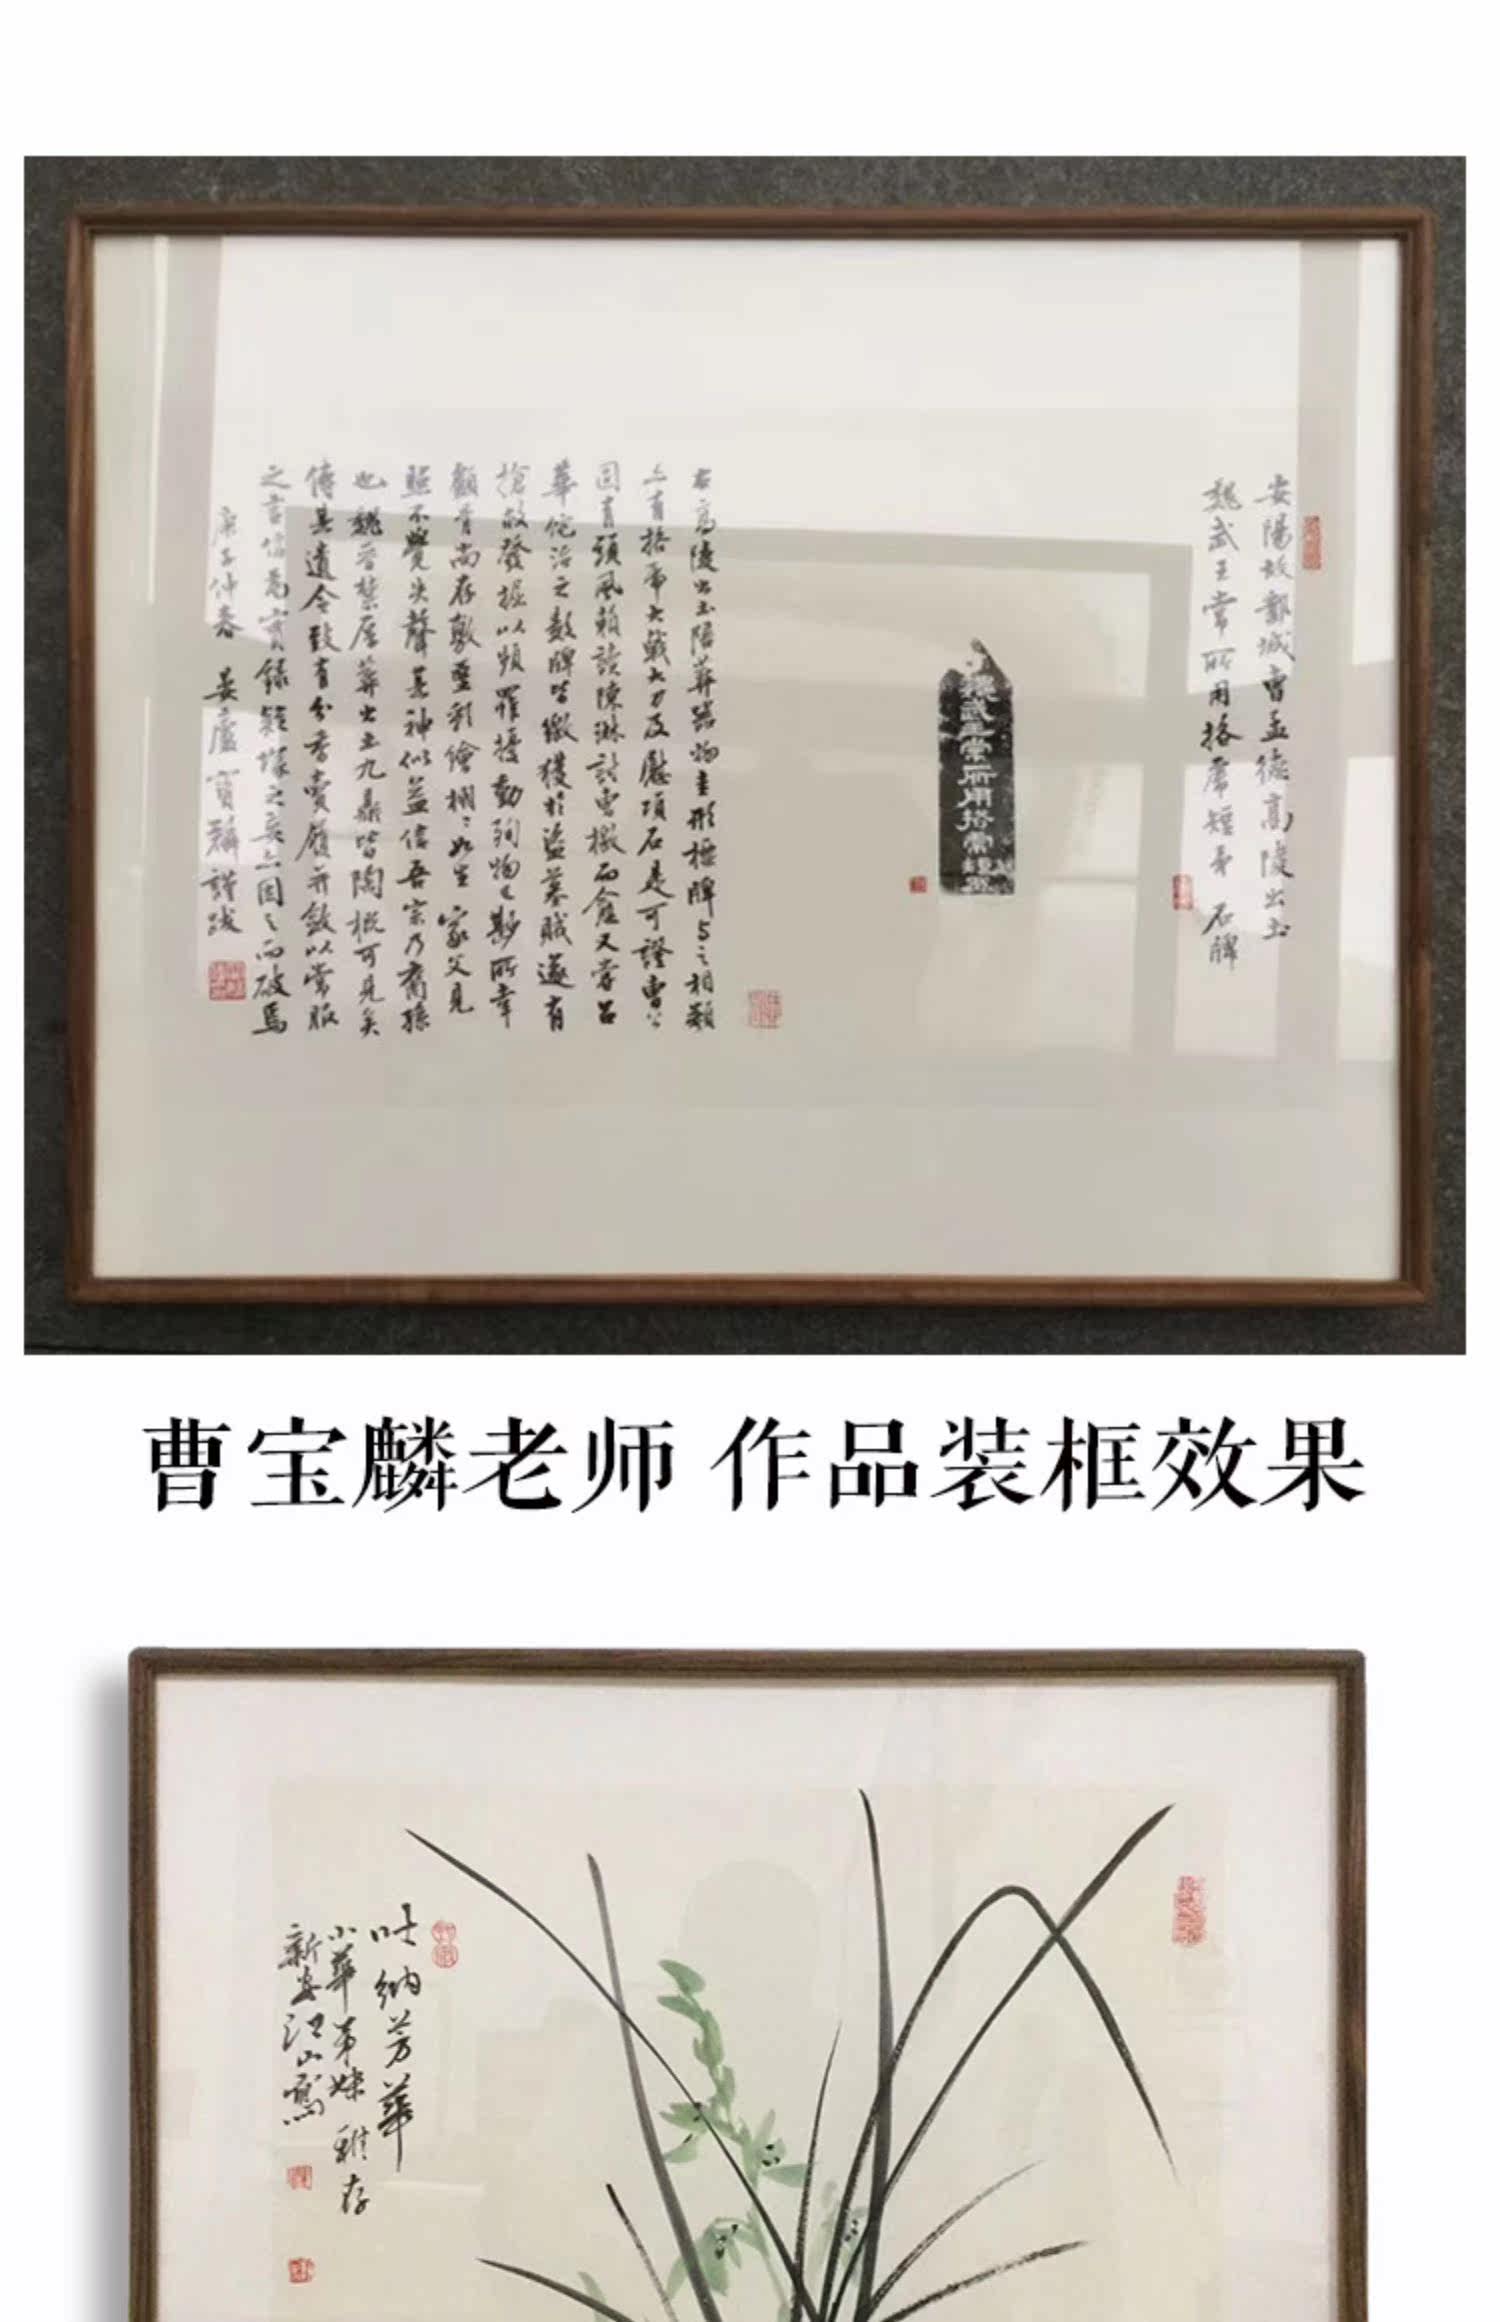 安陽故鄴城曹孟德高陵出土
魏武王常所用格虎短矛 石牌
魏武王常所用格虎短矛
右高陵出土陪葬器物圭形標牌与之相類
亦有格虎大戟大刀及慰項石是可證曹公
固有頭風賴讀陳琳討曹檄而愈又嘗召
華佗治之數牌皆繳獲於盜墓賊遂有
搶救發掘以頻罹擾動殉物之尠所幸
顱骨尚存敷堊彩繪栩栩如生 家父見
照不覺失聲甚神似益信吾宗乃裔孫
也魏晉禁厚葬出土九鼎皆陶概可見矣
傳其遺令致有分香賣履并斂以常服
之言信為實錄疑塚之妄亦因之而破焉
庚子仲春 晏廬寶麟謹跋
曹宝麟老师 作品装框效果
吐納芳華
小華弟妹 雅存
新安江山鶯